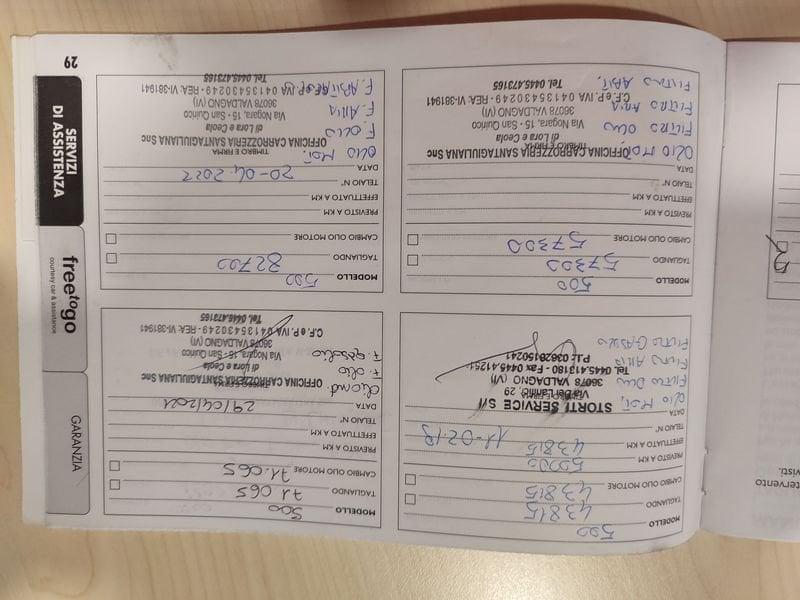 MODELLO 500
TAGLIANDO 43815
CAMBIO OLIO MOTORE 43815
PREVISTO A KM 50000
EFFETTUATO A KM 43815
TELAIO N° 11-02-19
DATA
STORTI SERVICE S
OLIO MOT.
36078 VALDAGNO (VI)
Tel. 0445.413180 - Fax 0445.41251
FILTRO OLIO
FILTRO ARIA
FILTRO GASOLIO
MODELLO 500
TAGLIANDO 71.065
CAMBIO OLIO MOTORE 71.065
PREVISTO A KM
EFFETTUATO A KM
TELAIO N°
DATA 29/04/2021
TIMBRO E FIRMA
OFFICINA CARROZZERIA SANTAGIULIANA Snc
di Lora e Ceola
Via Nogara, 15 - San Quirico
36078 VALDAGNO (VI)
C.F. e P. IVA 04135430249 - REA: VI-381941
Tel. 0445.473165
F. olio
F. gasolio
MODELLO 500
TAGLIANDO 57300
CAMBIO OLIO MOTORE 57300
PREVISTO A KM
EFFETTUATO A KM
TELAIO N°
DATA
TIMBRO E FIRMA
OLIO MOT.
OFFICINA CARROZZERIA SANTAGIULIANA Snc
di Lora e Ceola
FILTRO OLIO
Via Nogara, 15 - San Quirico
36078 VALDAGNO (VI)
FILTRO ARIA
C.F. e P. IVA 04135430249 - REA: VI-381941
Tel. 0445.473165
FILTRO ABIT.
MODELLO 500
TAGLIANDO 82700
CAMBIO OLIO MOTORE
PREVISTO A KM
EFFETTUATO A KM
TELAIO N°
DATA 20-04-2022
TIMBRO E FIRMA
OLIO MOT.
OFFICINA CARROZZERIA SANTAGIULIANA Snc
di Lora e Ceola
F. OLIO
Via Nogara, 15 - San Quirico
36078 VALDAGNO (VI)
F. ARIA
C.F. e P. IVA 04135430249 - REA: VI-381941
Tel. 0445.473165
GARANZIA
freetogo
courtesy car & assistance
SERVIZI
DI ASSISTENZA
29
tervento
visti.